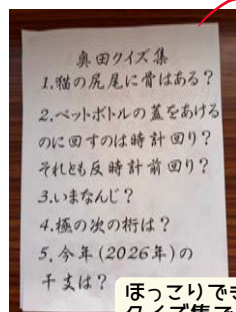 奥田クイズ集
1.猫の尻尾に骨はある?
2.ペットボトルの蓋をあける
のに回すのは時計回り?
それとも反時計前回り?
3.いまなんじ?
4.極の次の桁は?
5.今年(2026年)の
干支は?
ほっこりでき